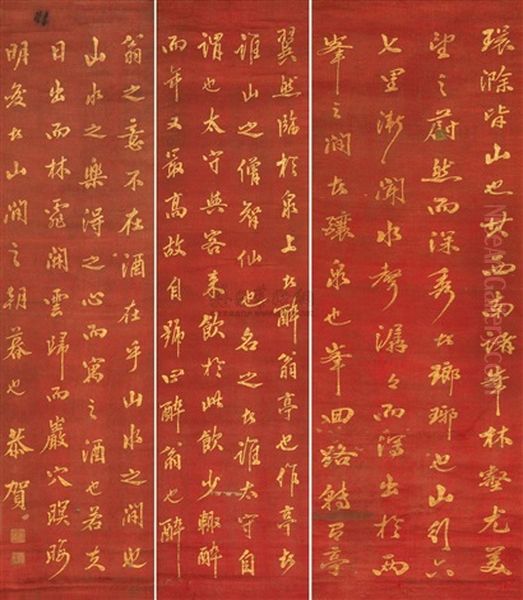 環滁皆山也其西南諸峯林壑尤美
望之蔚然而深秀者瑯琊也山行六
七里漸聞水聲潺々而瀉出於兩
峯之間者釀泉也峯回路轉有亭
翼然臨於泉上者醉翁亭也作亭者
誰山之僧智仙也名之者誰太守自
謂也太守與客来飲於此飲少輒醉
而年又最高故自號曰醉翁也醉
翁之意不在酒在乎山水之間也
山水之樂得之心而寓之酒也若夫
日出而林霏開雲歸而巖穴暝晦
明変者山間之朝暮也 恭賀